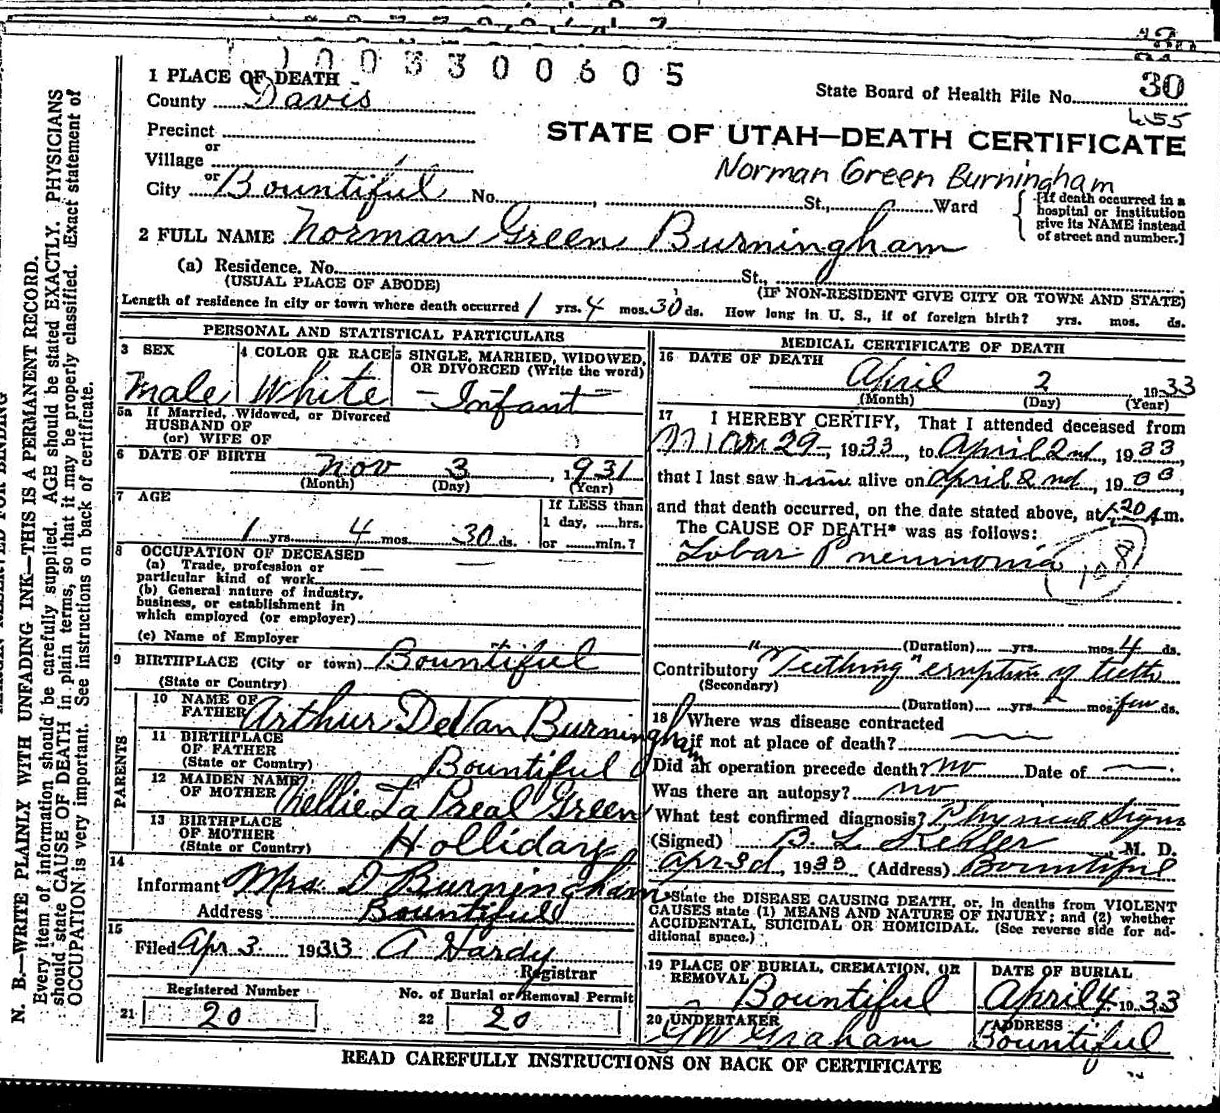 1003300605
1 PLACE OF DEATH
State Board of Health File No. 30
County Davis
455
Precinct
STATE OF UTAH—DEATH CERTIFICATE
or
Village
Norman Green Burningham
or
City Bountiful No. St., Ward
[If death occurred in a
hospital or institution
give its NAME instead
of street and number.]
2 FULL NAME Norman Green Burningham
(a) Residence. No. St.,
(USUAL PLACE OF ABODE) (IF NON-RESIDENT GIVE CITY OR TOWN AND STATE)
Length of residence in city or town where death occurred 1 yrs. 4 mos. 30 ds. How long in U. S., if of foreign birth? yrs. mos. ds.
PERSONAL AND STATISTICAL PARTICULARS
3 SEX
Male
4 COLOR OR RACE
White
5 SINGLE, MARRIED, WIDOWED,
OR DIVORCED (Write the word)
Infant
5a If Married, Widowed, or Divorced
HUSBAND OF
(or) WIFE OF
6 DATE OF BIRTH Nov 3 1931
(Month) (Day) (Year)
7 AGE
1 yrs. 4 mos. 30 ds.
If LESS than
1 day, ......hrs.
or ........min.?
8 OCCUPATION OF DECEASED
(a) Trade, profession or
particular kind of work
(b) General nature of industry,
business, or establishment in
which employed (or employer)
(c) Name of Employer
9 BIRTHPLACE (City or town) Bountiful
(State or Country)
PARENTS
10 NAME OF
FATHER Arthur DeVan Burningham
11 BIRTHPLACE
OF FATHER
(State or Country) Bountiful
12 MAIDEN NAME
OF MOTHER Nellie La Preal Green
13 BIRTHPLACE
OF MOTHER
(State or Country) Holliday
14
Informant Mrs. D Burningham
Address Bountiful
15
Filed Apr 3 1933 A Hardy
Registrar
Registered Number
21 20
No. of Burial or Removal Permit
22 20
MEDICAL CERTIFICATE OF DEATH
16 DATE OF DEATH
April 2 1933
(Month) (Day) (Year)
17 I HEREBY CERTIFY, That I attended deceased from
Mar 29, 1933, to April 2nd, 1933
that I last saw him alive on April 2nd, 1933,
and that death occurred, on the date stated above, at 1:20 A.m.
The CAUSE OF DEATH* was as follows:
Lobar Pneumonia
108
(Duration) yrs. mos. 4 ds.
Contributory "Teething" eruption of teeth
(Secondary)
(Duration) yrs. mos. few ds.
18 Where was disease contracted
if not at place of death?
Did an operation precede death? no Date of
Was there an autopsy? no
What test confirmed diagnosis? Physical Signs
(Signed) B. L. Kesler M. D.
Apr 3d, 1933 (Address) Bountiful
*State the DISEASE CAUSING DEATH, or, in deaths from VIOLENT
CAUSES state (1) MEANS AND NATURE OF INJURY; and (2) whether
ACCIDENTAL, SUICIDAL OR HOMICIDAL. (See reverse side for ad-
ditional space.)
19 PLACE OF BURIAL, CREMATION, OR
REMOVAL Bountiful
DATE OF BURIAL
April 4 1933
20 UNDERTAKER
GW Graham
ADDRESS
Bountiful
READ CAREFULLY INSTRUCTIONS ON BACK OF CERTIFICATE
MARGIN RESERVED FOR BINDING
N. B.—WRITE PLAINLY WITH UNFADING INK—THIS IS A PERMANENT RECORD.
Every item of information should be carefully supplied. AGE should be stated EXACTLY. PHYSICIANS
should state CAUSE OF DEATH in plain terms, so that it may be properly classified. Exact statement of
OCCUPATION is very important. See instructions on back of certificate.